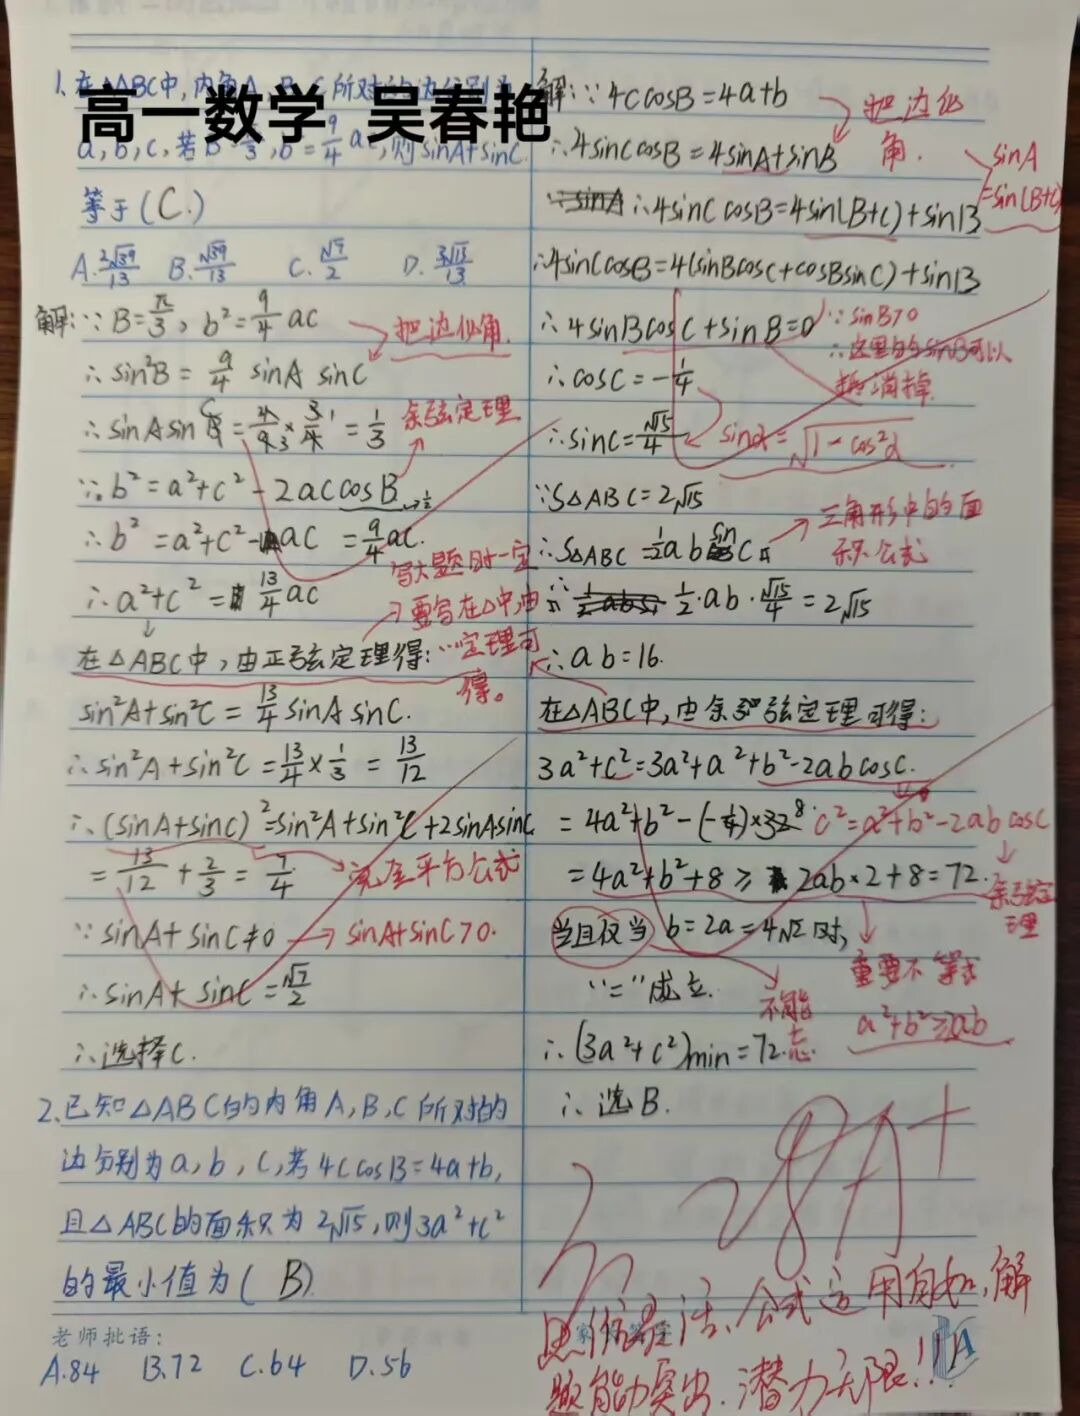 1.在△ABC中,内角A,B,C所对的边分别为
高一数学 吴春艳
a,b,c,若B=π/3,b²=9/4ac,则sinA+sinC
等于(C.)
A.2√39/13 B.√39/13 C.√7/2 D.3√13/13
解:∵B=π/3,b²=9/4 ac
把边化角.
∴sin²B=9/4 sinA sinC
∴sinAsinC=4/9×3/4=1/3
余弦定理
∵b²=a²+c²-2accosB →1/2
∴b²=a²+c²-ac=9/4ac.
∴a²+c²=13/4ac
写大题时一定
要写在△中,由
…定理可
得。
在△ABC中,由正弦定理得:
sin²A+sin²C=13/4 sinA sinC.
∴sin²A+sin²C=13/4×1/3=13/12
∴(sinA+sinC)²=sin²A+sin²C+2sinAsinC
=13/12+2/3=7/4
完全平方公式
∵sinA+sinC≠0→sinA+sinC>0.
∴sinA+sinC=√7/2
∴选择C.
2.已知△ABC的内角A,B,C所对的
边分别为a,b,c,若4ccosB=4a+b,
且△ABC的面积为2√15,则3a²+c²
的最小值为(B)
老师批语:
A.84 B.72 C.64 D.56
解:∵4ccosB=4a+b
把边化
角.
∴4sinCcosB=4sinA+sinB
sinA
=sin(B+C)
∴4sinCcosB=4sin(B+C)+sinB
∴4sinCcosB=4(sinBcosC+cosBsinC)+sinB
∴4sinBcosC+sinB=0
∵sinB>0
∴这里的sinB可以
消掉.
∴cosC=-1/4
∴sinC=√15/4
sinα=√1-cos²α
∵S△ABC=2√15
三角形中的面
积公式
∴S△ABC=1/2absinC
∴1/2·ab·√15/4=2√15
∴ab=16.
在△ABC中,由余弦定理可得:
3a²+c²=3a²+a²+b²-2abcosC.
=4a²+b²-(-1/4)×32
c²=a²+b²-2abcosC
=4a²+b²+8≥2ab×2+8=72.
余弦定
理
当且仅当b=2a=4√2时,
重要不等式
a²+b²≥2ab
“=”成立.
不能
忘.
∴(3a²+c²)min=72.
∴选B.
28 A+
思维灵活、公式运用自如,解
题能力突出.潜力无限!!
A